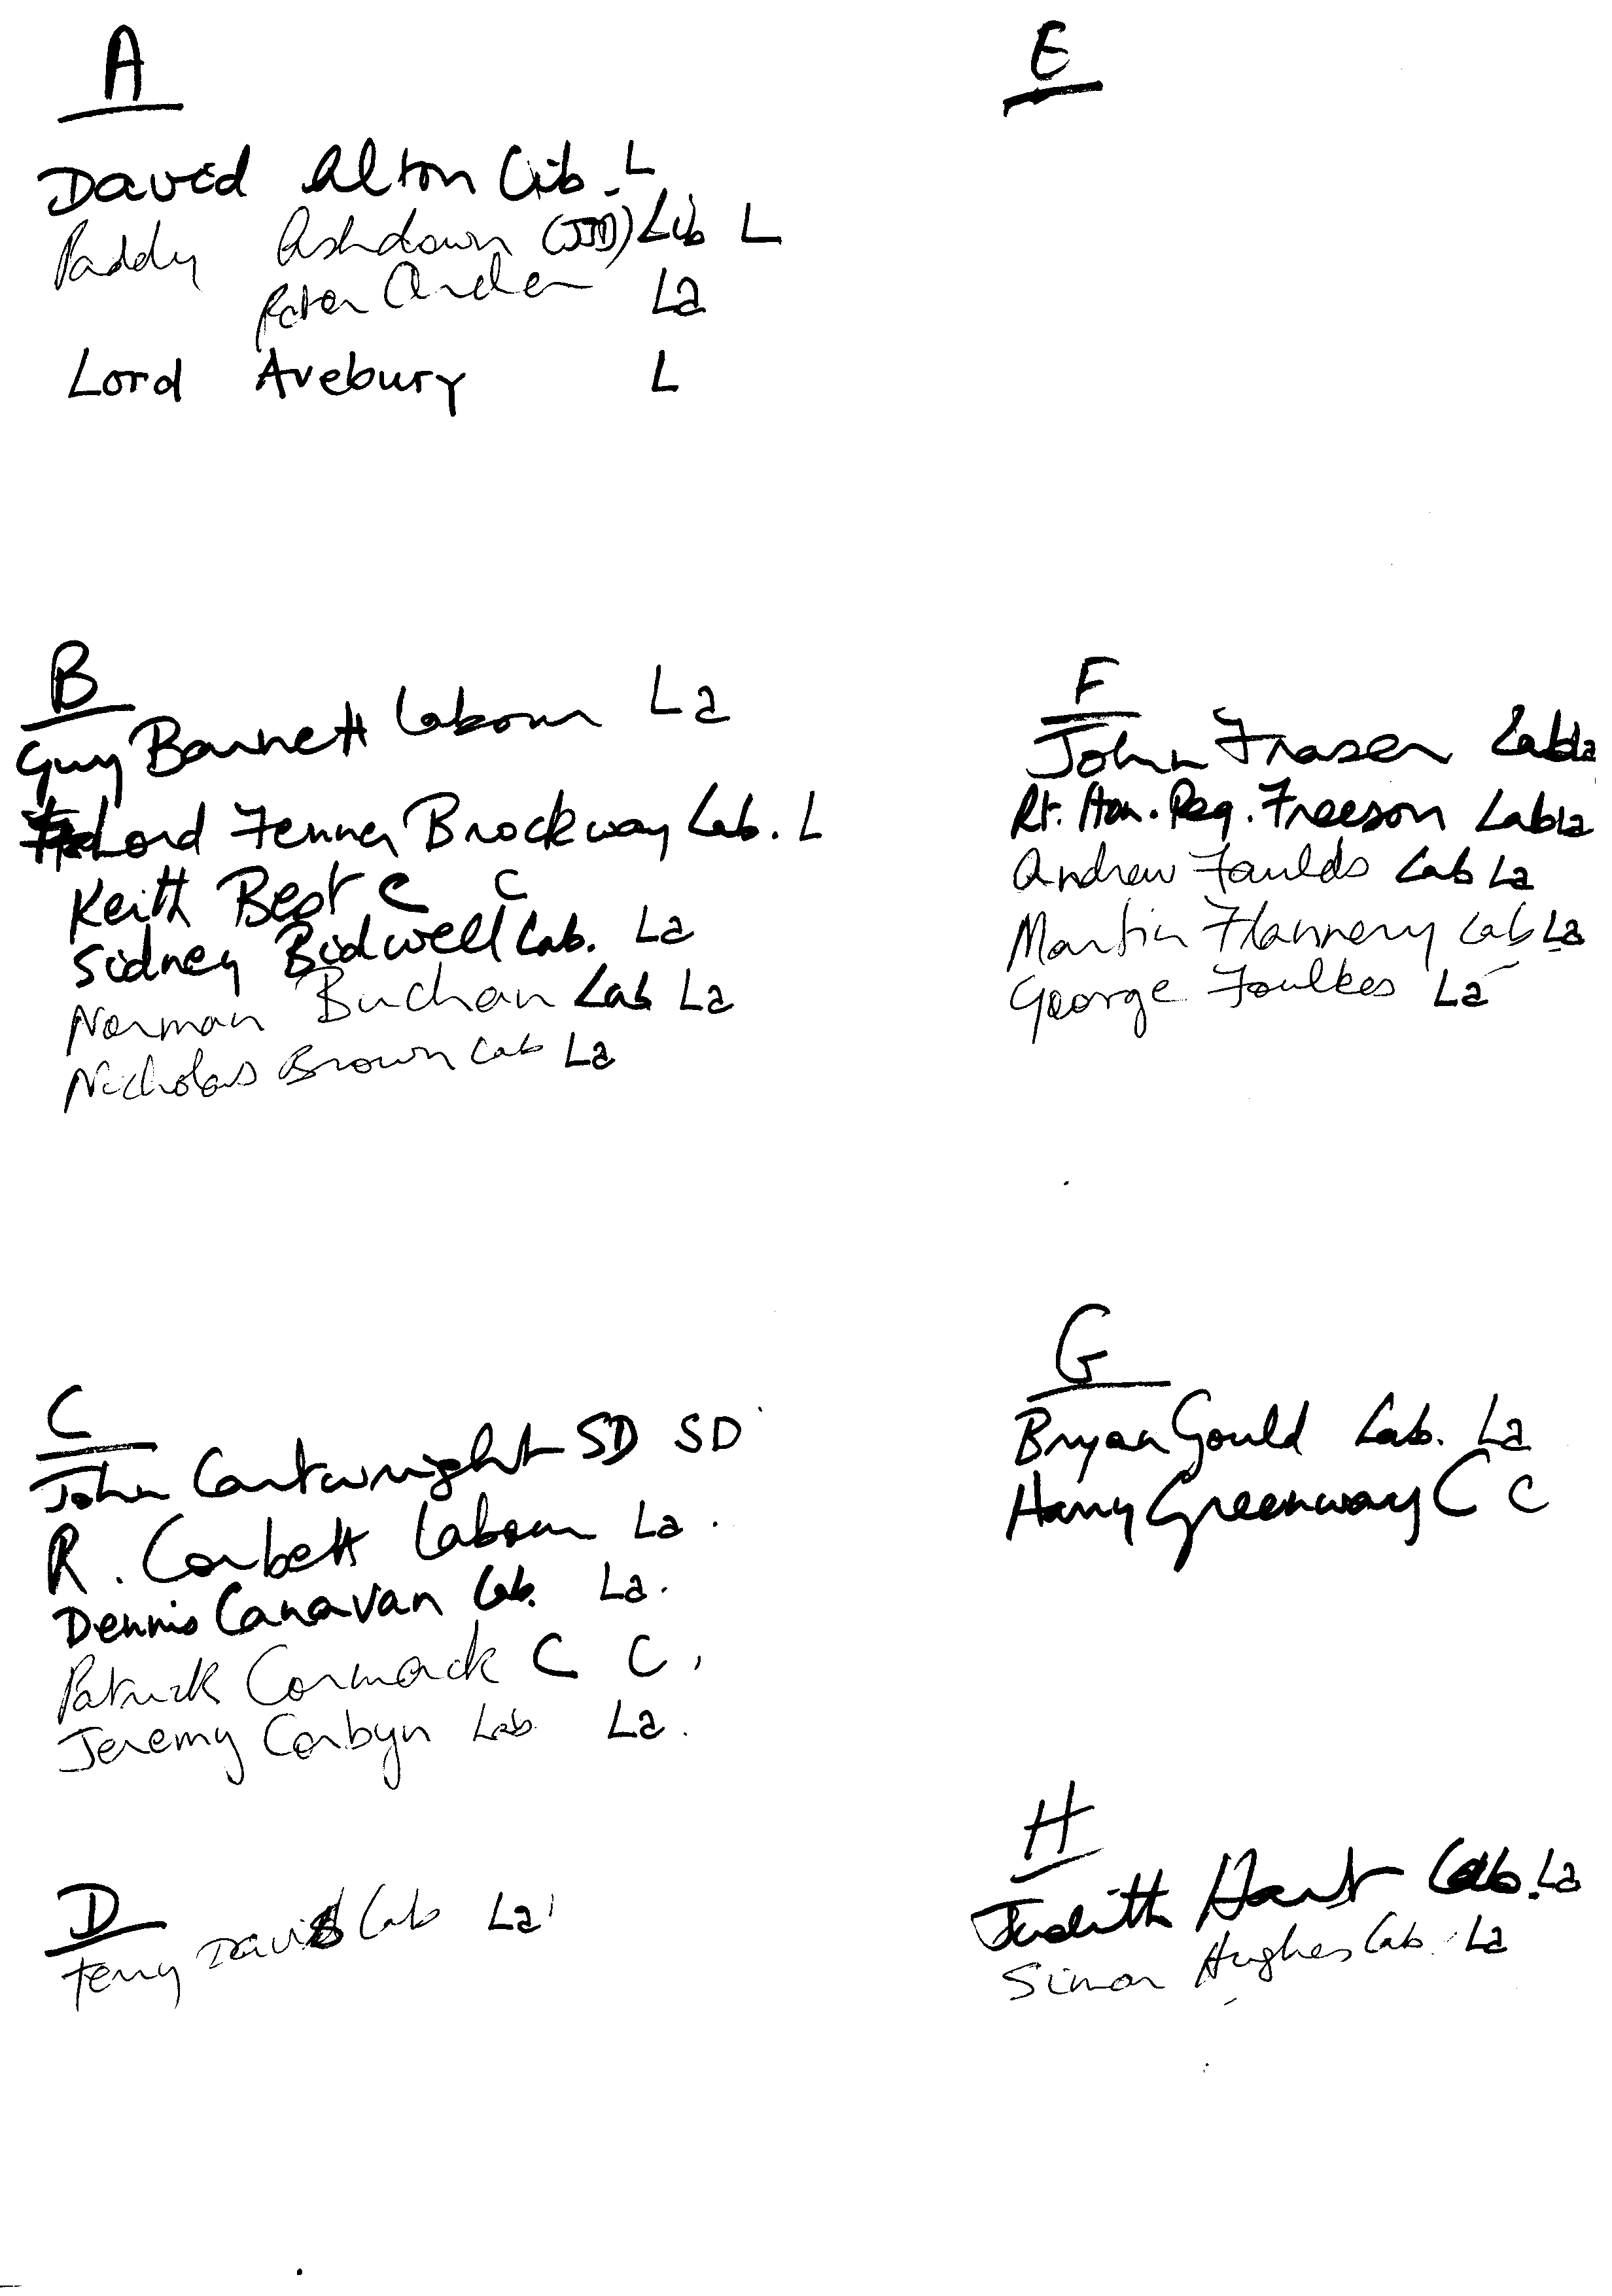 A
David Alton Lib. L
Paddy Ashdown (JJD) Lib L
Peter Archer La
Lord Avebury L
B
Guy Barnett Labour La
Lord Fenner Brockway Lab. L
Keith Best C C
Sidney Bidwell Lab. La
Norman Buchan Lab La
Nicholas Brown Lab La
C
John Cartwright SD SD
R. Corbett Labour La.
Dennis Canavan Lab. La.
Patrick Cormack C C,
Jeremy Corbyn Lab. La.
D
Terry Davis Lab La
E
F
John Fraser Lab La
Rt. Hon. Reg. Freeson Lab La
Andrew Faulds Lab La
Martin Flannery Lab La
George Foulkes La
G
Bryan Gould Lab. La
Harry Greenway C C
H
Judith Hart Lab. La
Simon Hughes Lab. La